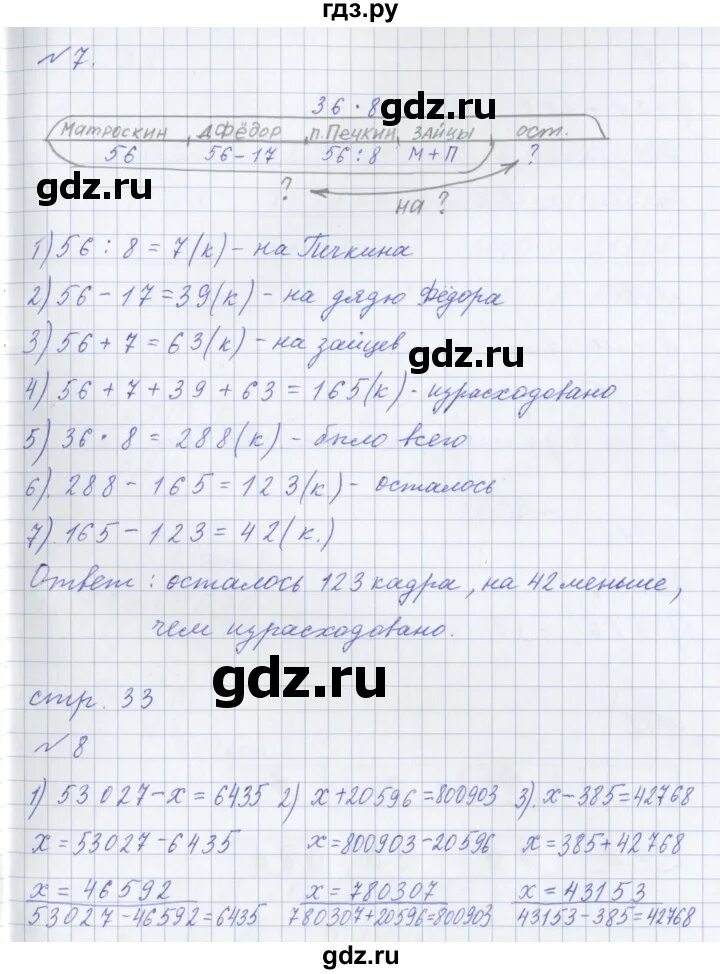 гдз.ру
№7.
36 · 8
gdz.ru
Матроскин д. Фёдор п. Печкин зайцы ост.
56 56-17 56:8 М+П ?
gdz.ru
? на ?
1) 56 : 8 = 7(к) - на Печкина
2) 56 - 17 = 39(к) - на дядю Фёдора
3) 56 + 7 = 63(к) - на зайцев
gdz.ru
4) 56 + 7 + 39 + 63 = 165(к) - израсходовано
5) 36 · 8 = 288(к) - было всего
6). 288 - 165 = 123(к) - осталось
7). 165 - 123 = 42(к.)
Ответ: осталось 123 кадра, на 42 меньше,
чем израсходовано.
gdz.ru
стр. 33
№8
1) 53027-x=6435 2) x+20596=800903 3). x-385=42768
x=53027-6435 x=800903-20596 x=385+42768
x=46592 x=780307 x=43153
53027-46592=6435 780307+20596=800903 43153-385=42768
gdz.ru